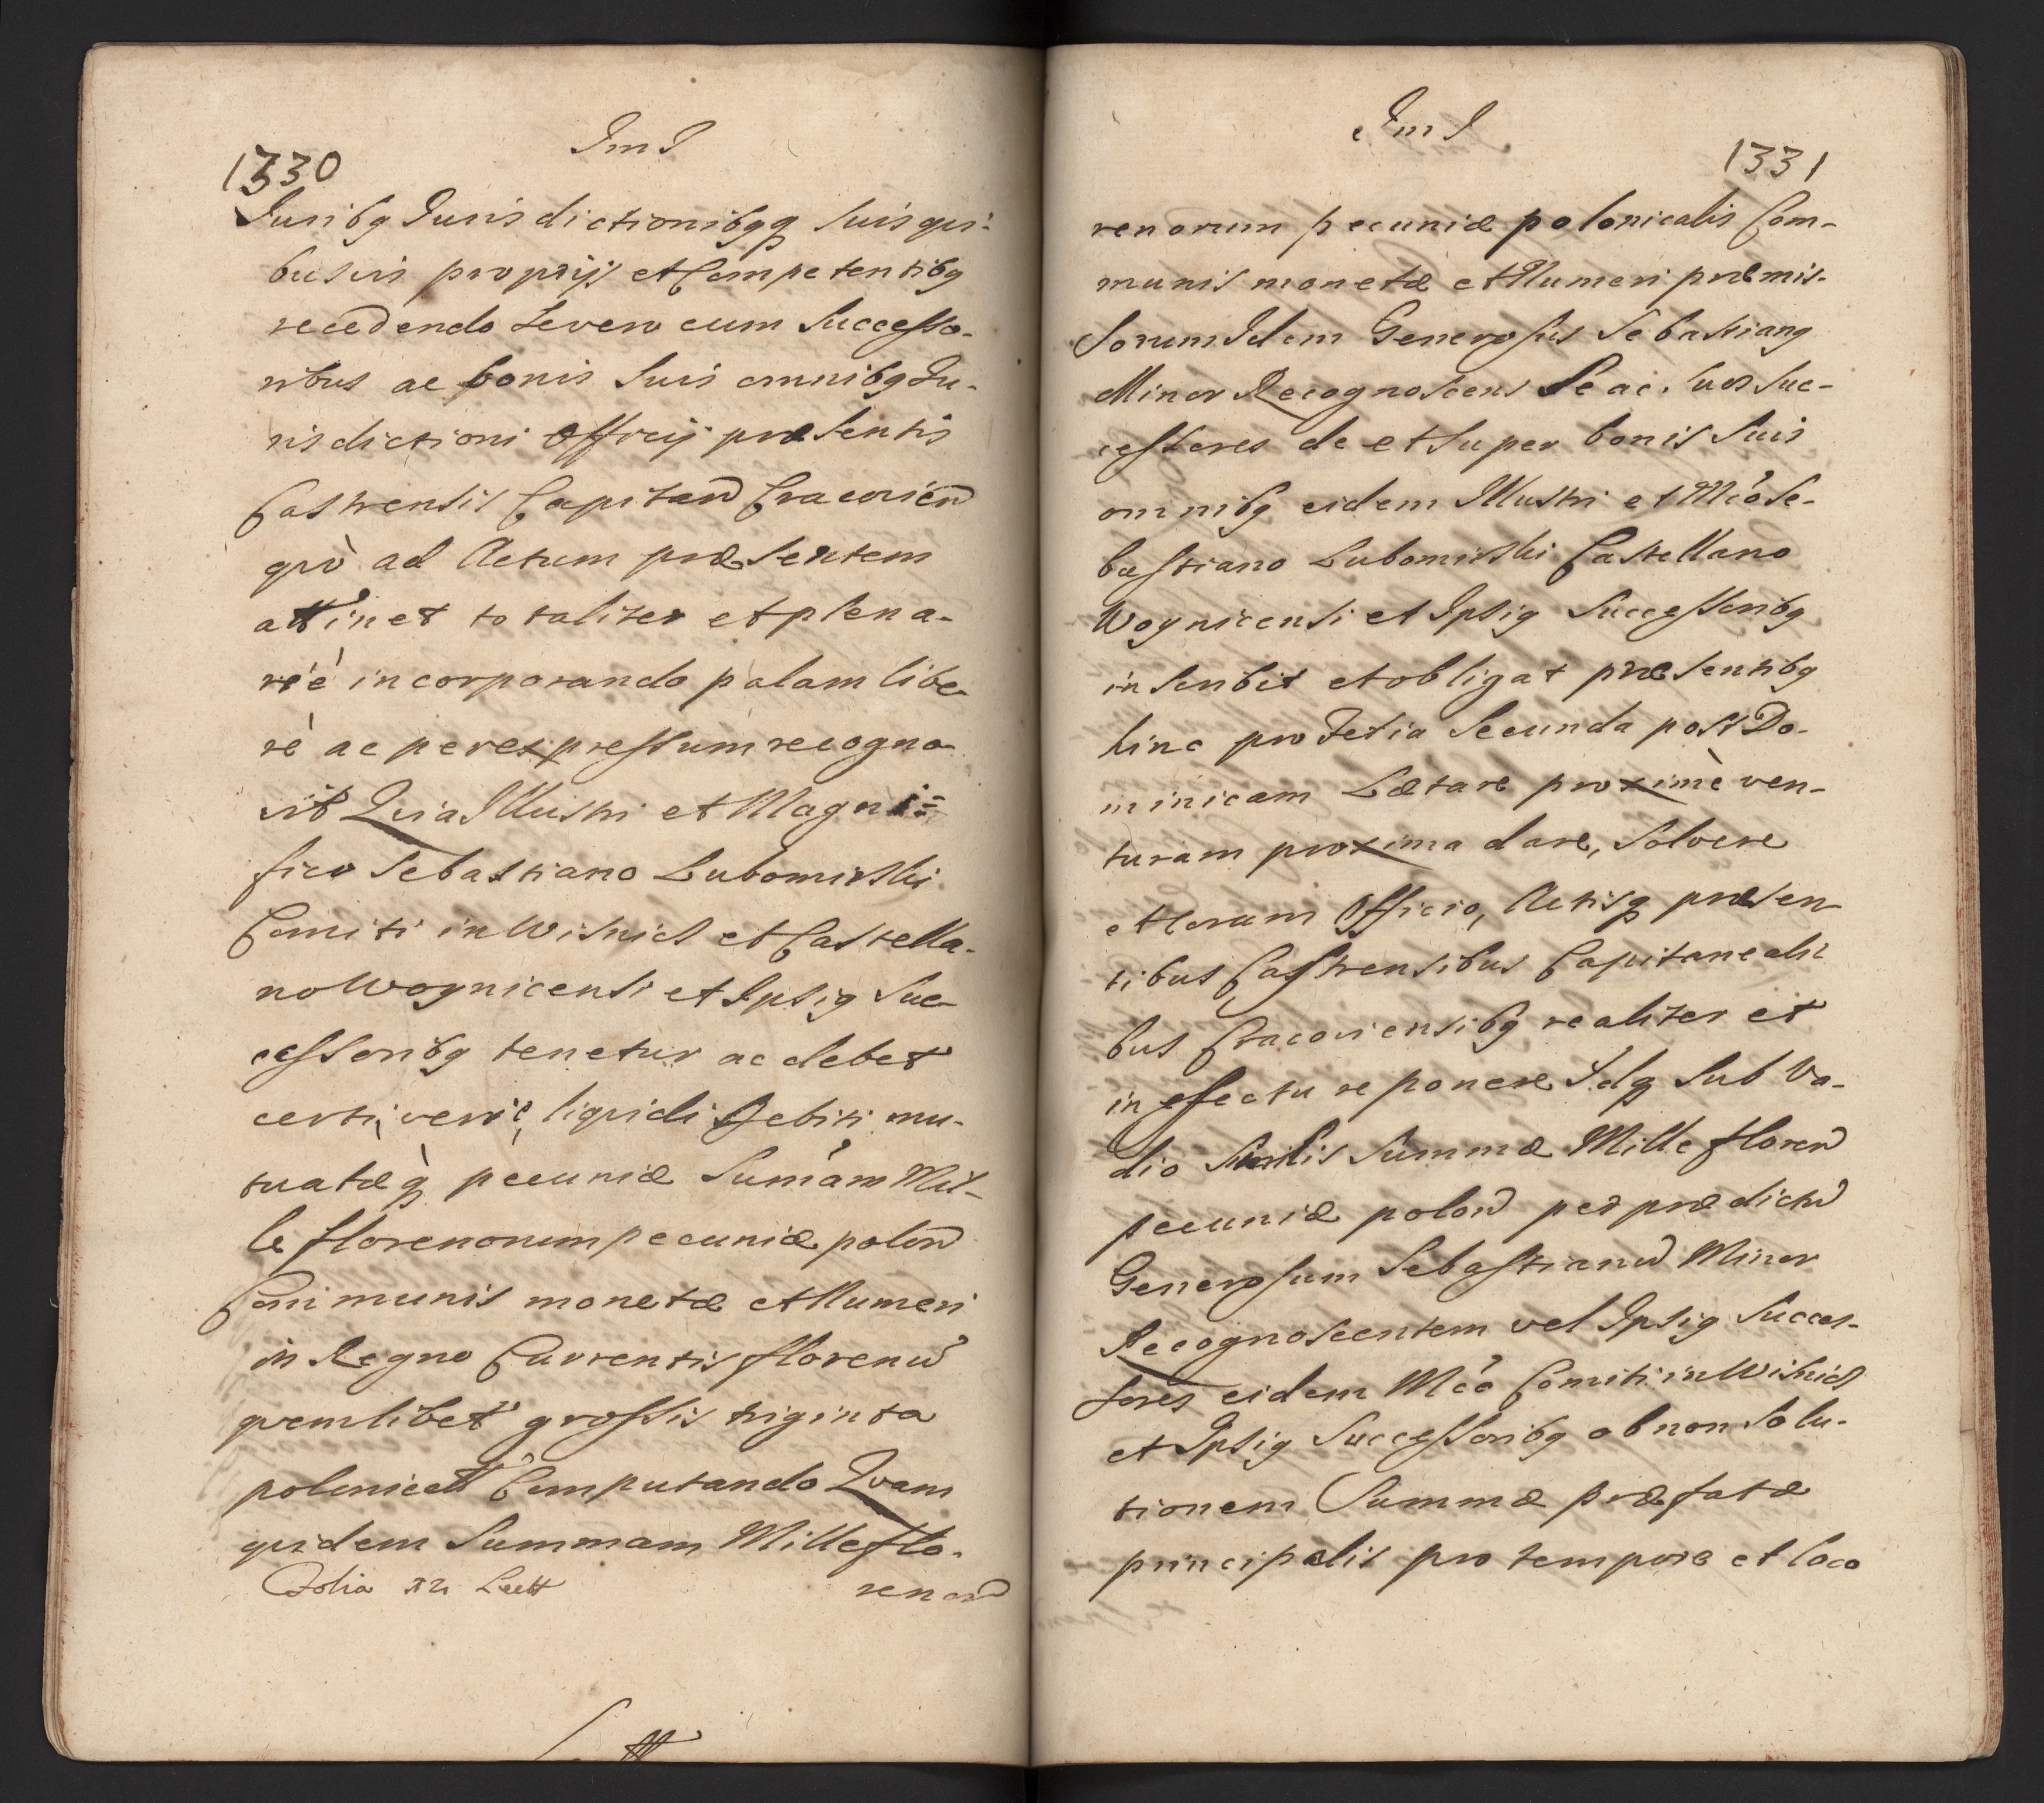 JmJ
1330
Juribq Jurisdictionibqq suis qui-
busvis proprijs et Competentibq
recedendo severo cum Successo-
ribus ac bonis suis omnibq Ju-
risdictioni Officij præsentis
Castrensis Capitan Cracovien
quò ad Actum præsentem
attinet totaliter et plena-
riè incorporando palam libe
rè ac per expressum recogno
vit Quia Illustri et Magni=
fico Sebastiano Lubomirski
Comiti in Wisnicz et Castella-
no Woynicensi et Ipsiq Suc
cessoribq tenetur ac debet
certi, veri, liquidi Debiti mu-
tuatæq pecuniæ Sum̃am Mil-
le florenorum pecuniæ polon
Communis monetæ et Numeri
in Regno Currentis florenu
quemlibet grossis triginta
polonicał Computando Quam
quidem Summam Mille flo-
Folia xx Lectt
renor
JmJ
1331
renorum pecuniæ polonicalis Com-
munis monetæ et Numeri præmis-
sorum Idem Generosus Sebastianq
Minor Recognoscens Se ac suos Suc-
cessores de et super bonis suis
omnibq eidem Illustri et Mco Se-
bastiano Lubomirski Castellano
Woynicensi et Ipsiq Successoribq
inscribit et obligat præsentibq
hinc pro Feria Secunda post Do-
minicam Lætare proximè ven-
turam proxima dare, Solvere
et Coram Officio, Actisq præsen
tibus Castrensibus Capitaneali
bus Cracoviensibq realiter et
in effectu reponere Idq Sub Va-
dio similis Summæ Mille floren
pecuniæ polon per prædictu
Generosum Sebastianu Minor
Recognoscentem vel Ipsiq Succes-
sores eidem Mco Comiti in Wisnicz
et Ipsiq Successoribq ob non Solu-
tionem Summæ præfatæ
principalis pro tempore et loco